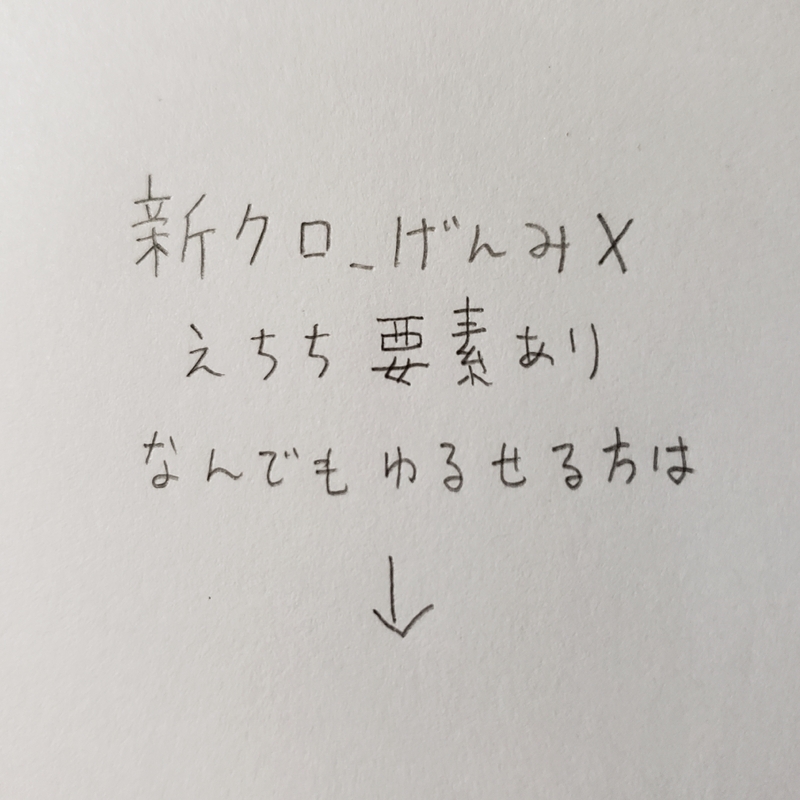 新クロ_げんみ✕
えちち要素あり
なんでもゆるせる方は
↓